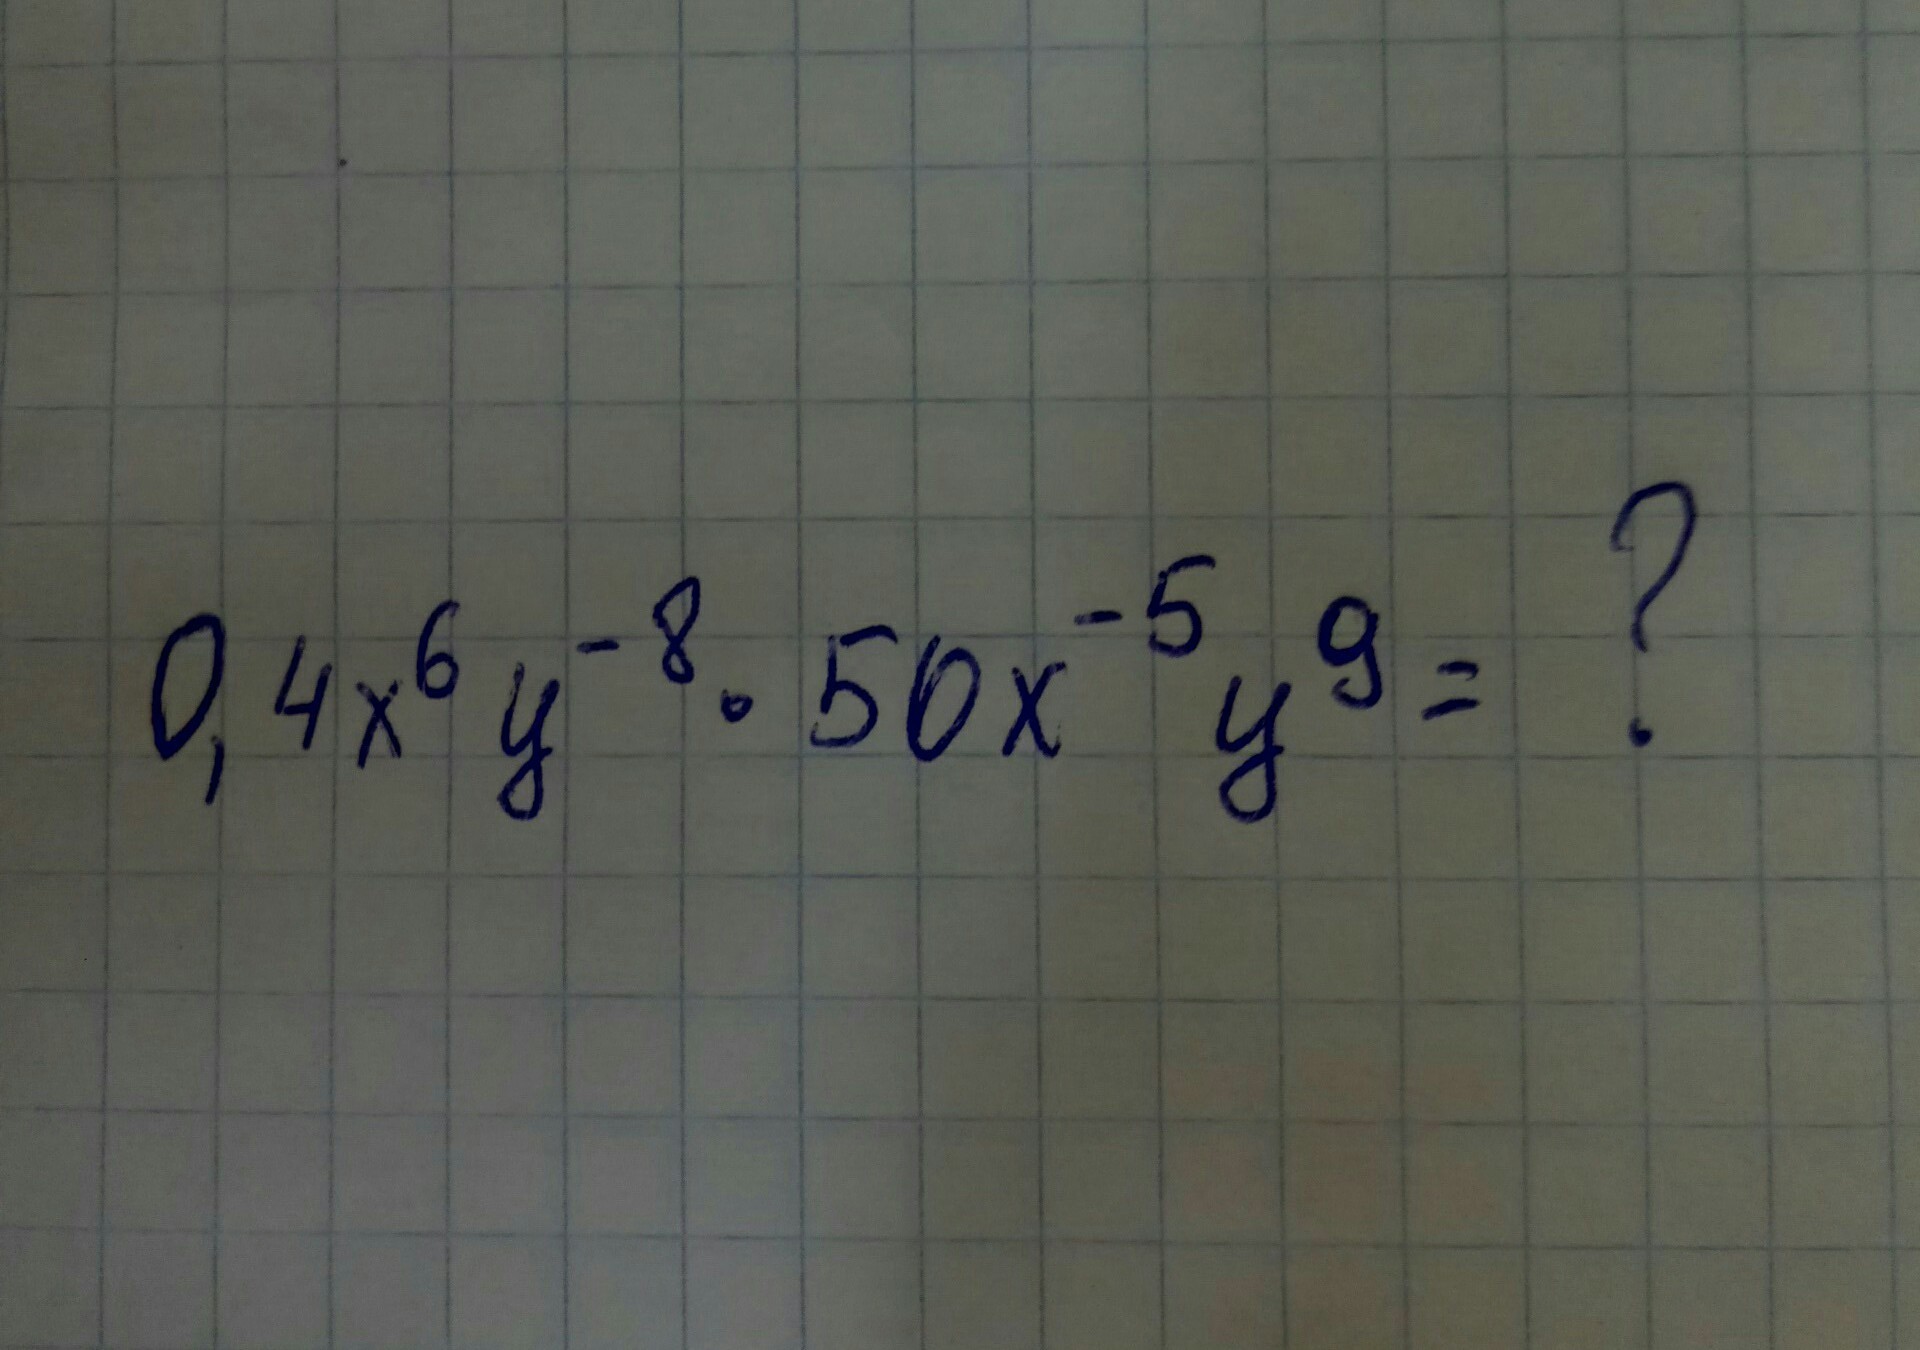 0,4x⁶y⁻⁸ · 50x⁻⁵y⁹ = ?